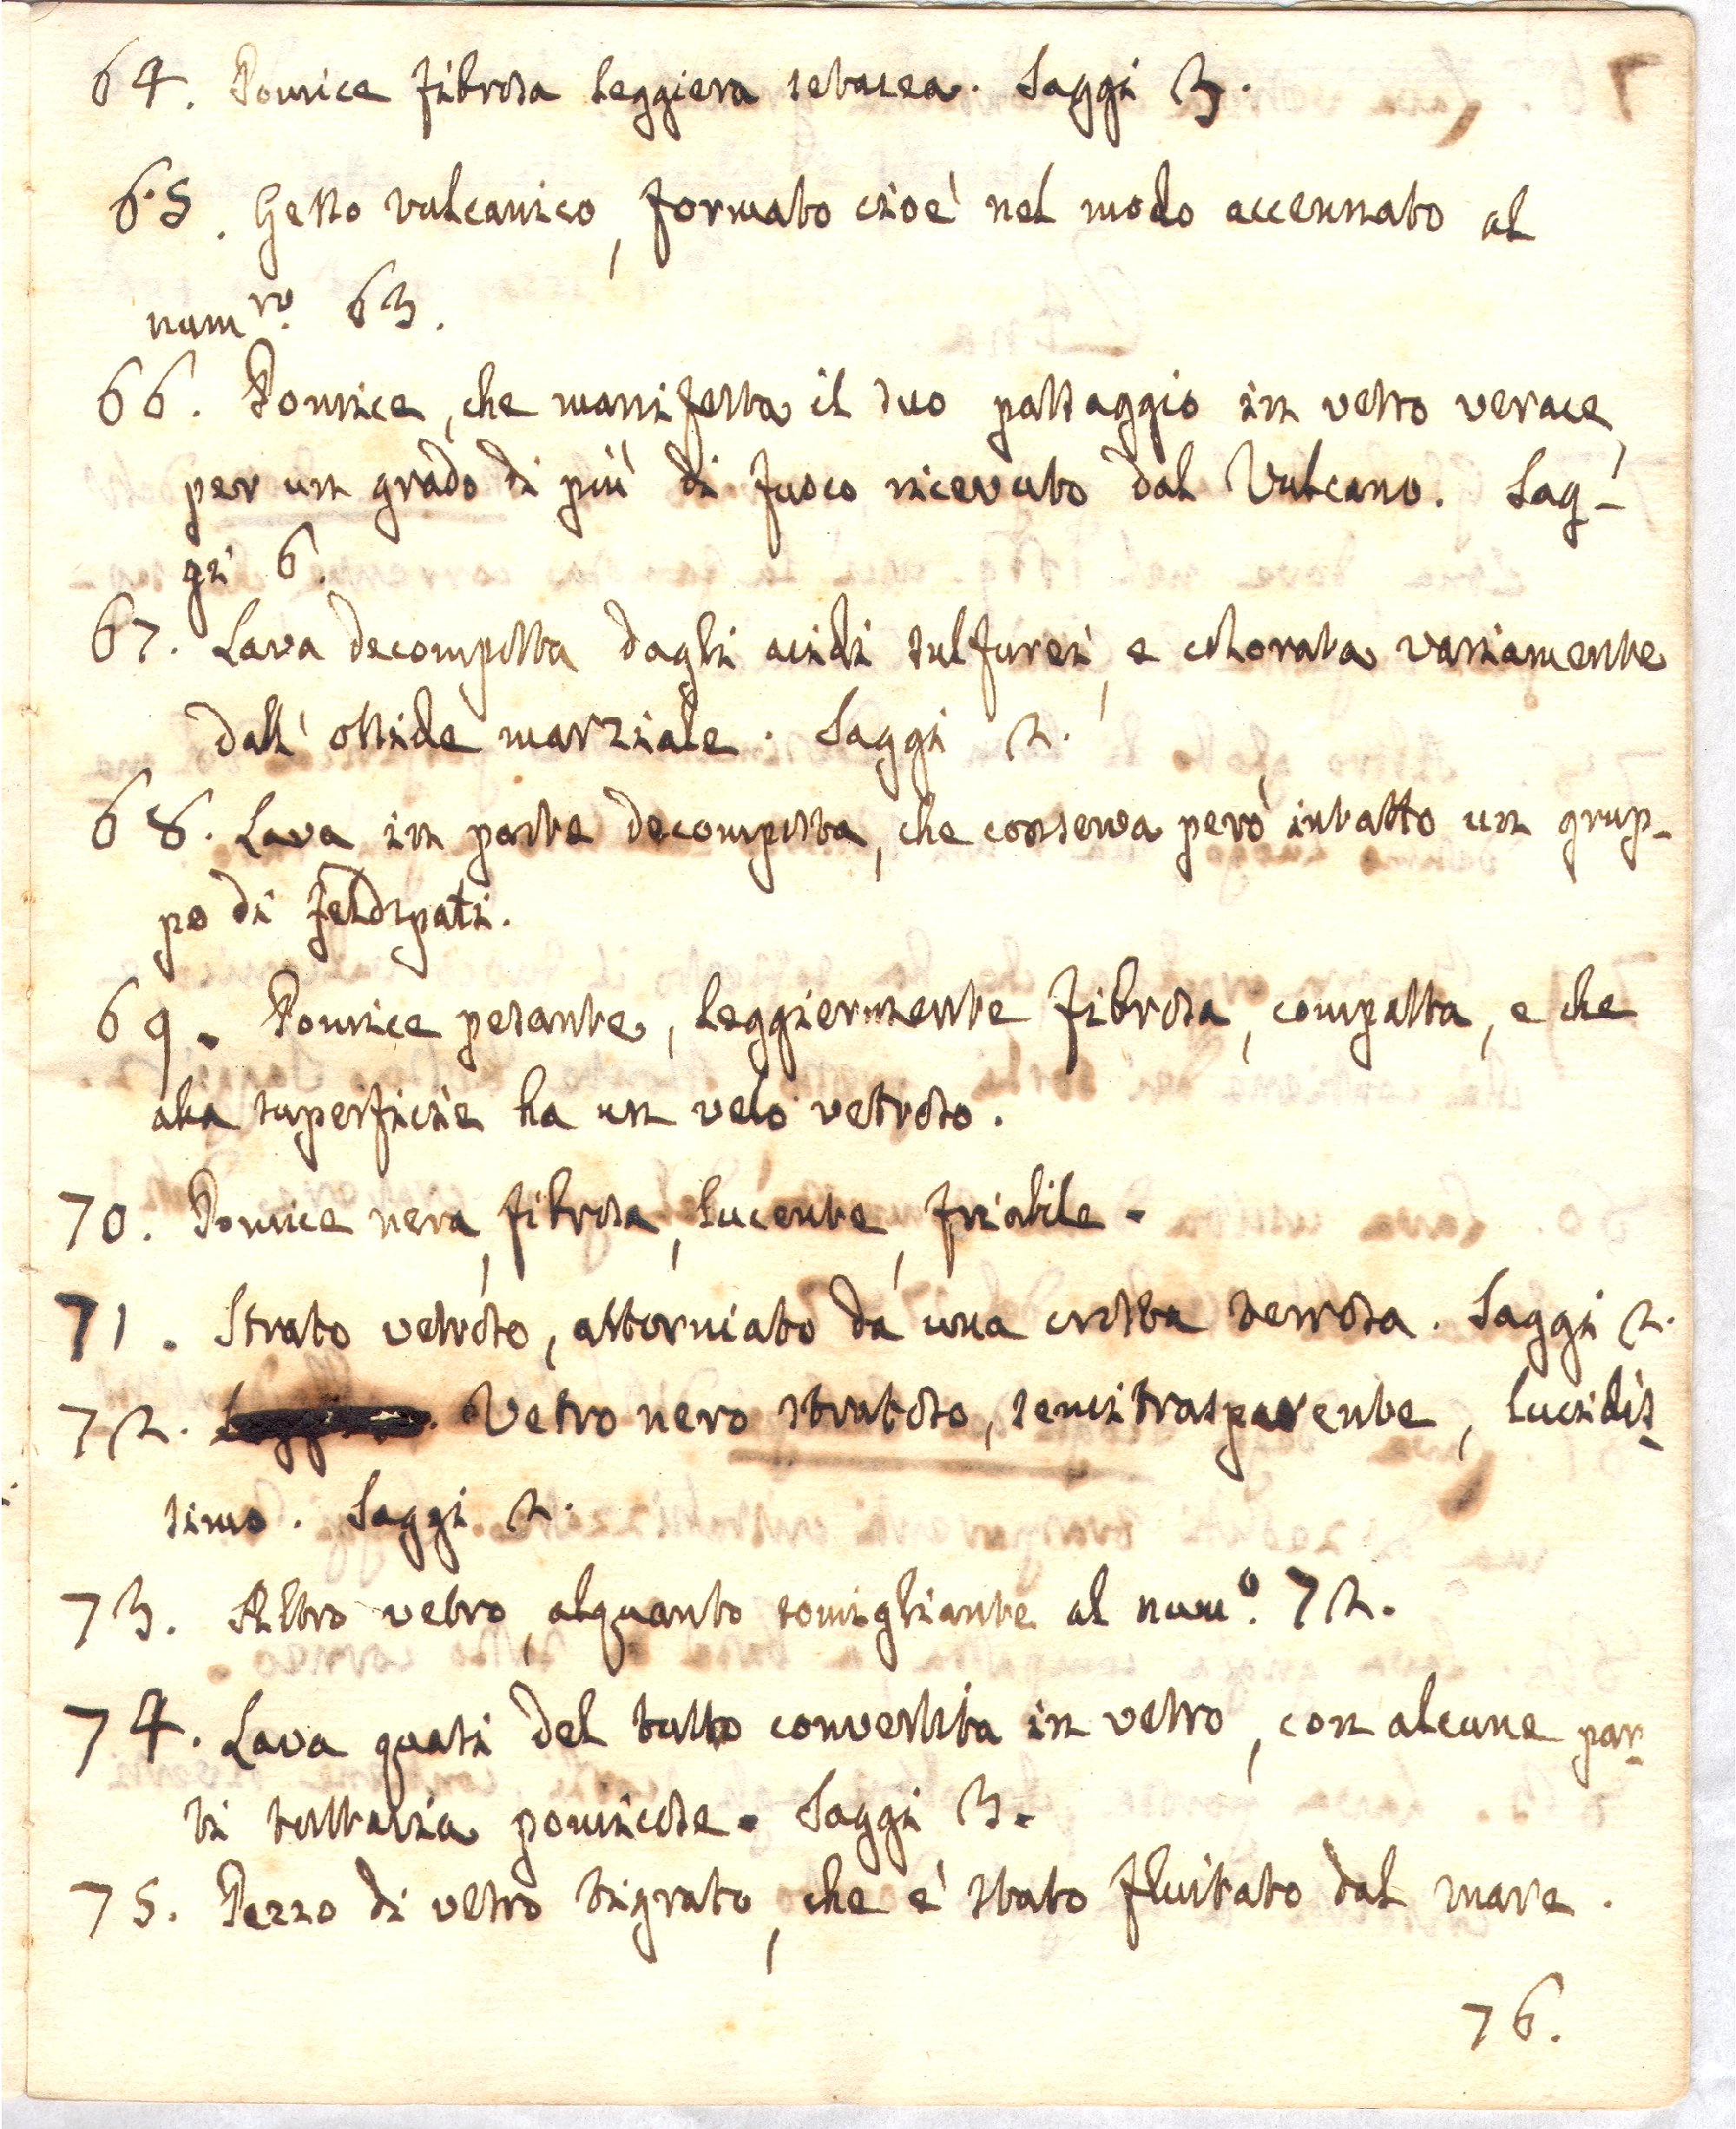 64. Pomice fibrosa leggiera setacea. Saggi 3.
65. Getto vulcanico, formato cioè nel modo accennato al
num.ro 63.
66. Pomice, che manifesta il suo passaggio in vetro verace,
per un grado di più di fuoco ricevuto dal Vulcano. Sag-
gi 6.
67. Lava decomposta dagli acidi sulfurei, e colorata variamente
dall' osside marziale. Saggi 2.
68. Lava in parte decomposta, che conserva però intatto un grup-
po di feldspati.
69. Pomice pesante, leggiermente fibrosa, compatta, e che
alla superficie ha un velo vetroso.
70. Pomice nera, fibrosa, lucente, friabile.
71. Strato vetroso, attorniato da una crosta terrosa. Saggi 2.
72. Vetro nero stratoso, semitrasparente, lucidis-
simo. Saggi 2.
73. Altro vetro, alquanto somigliante al num.o 72.
74. Lava quasi del tutto convertita in vetro, con alcune par-
ti tuttavia pomicose. Saggi 3.
75. Pezzo di vetro tigrato, che è stato fluitato dal mare.
76.